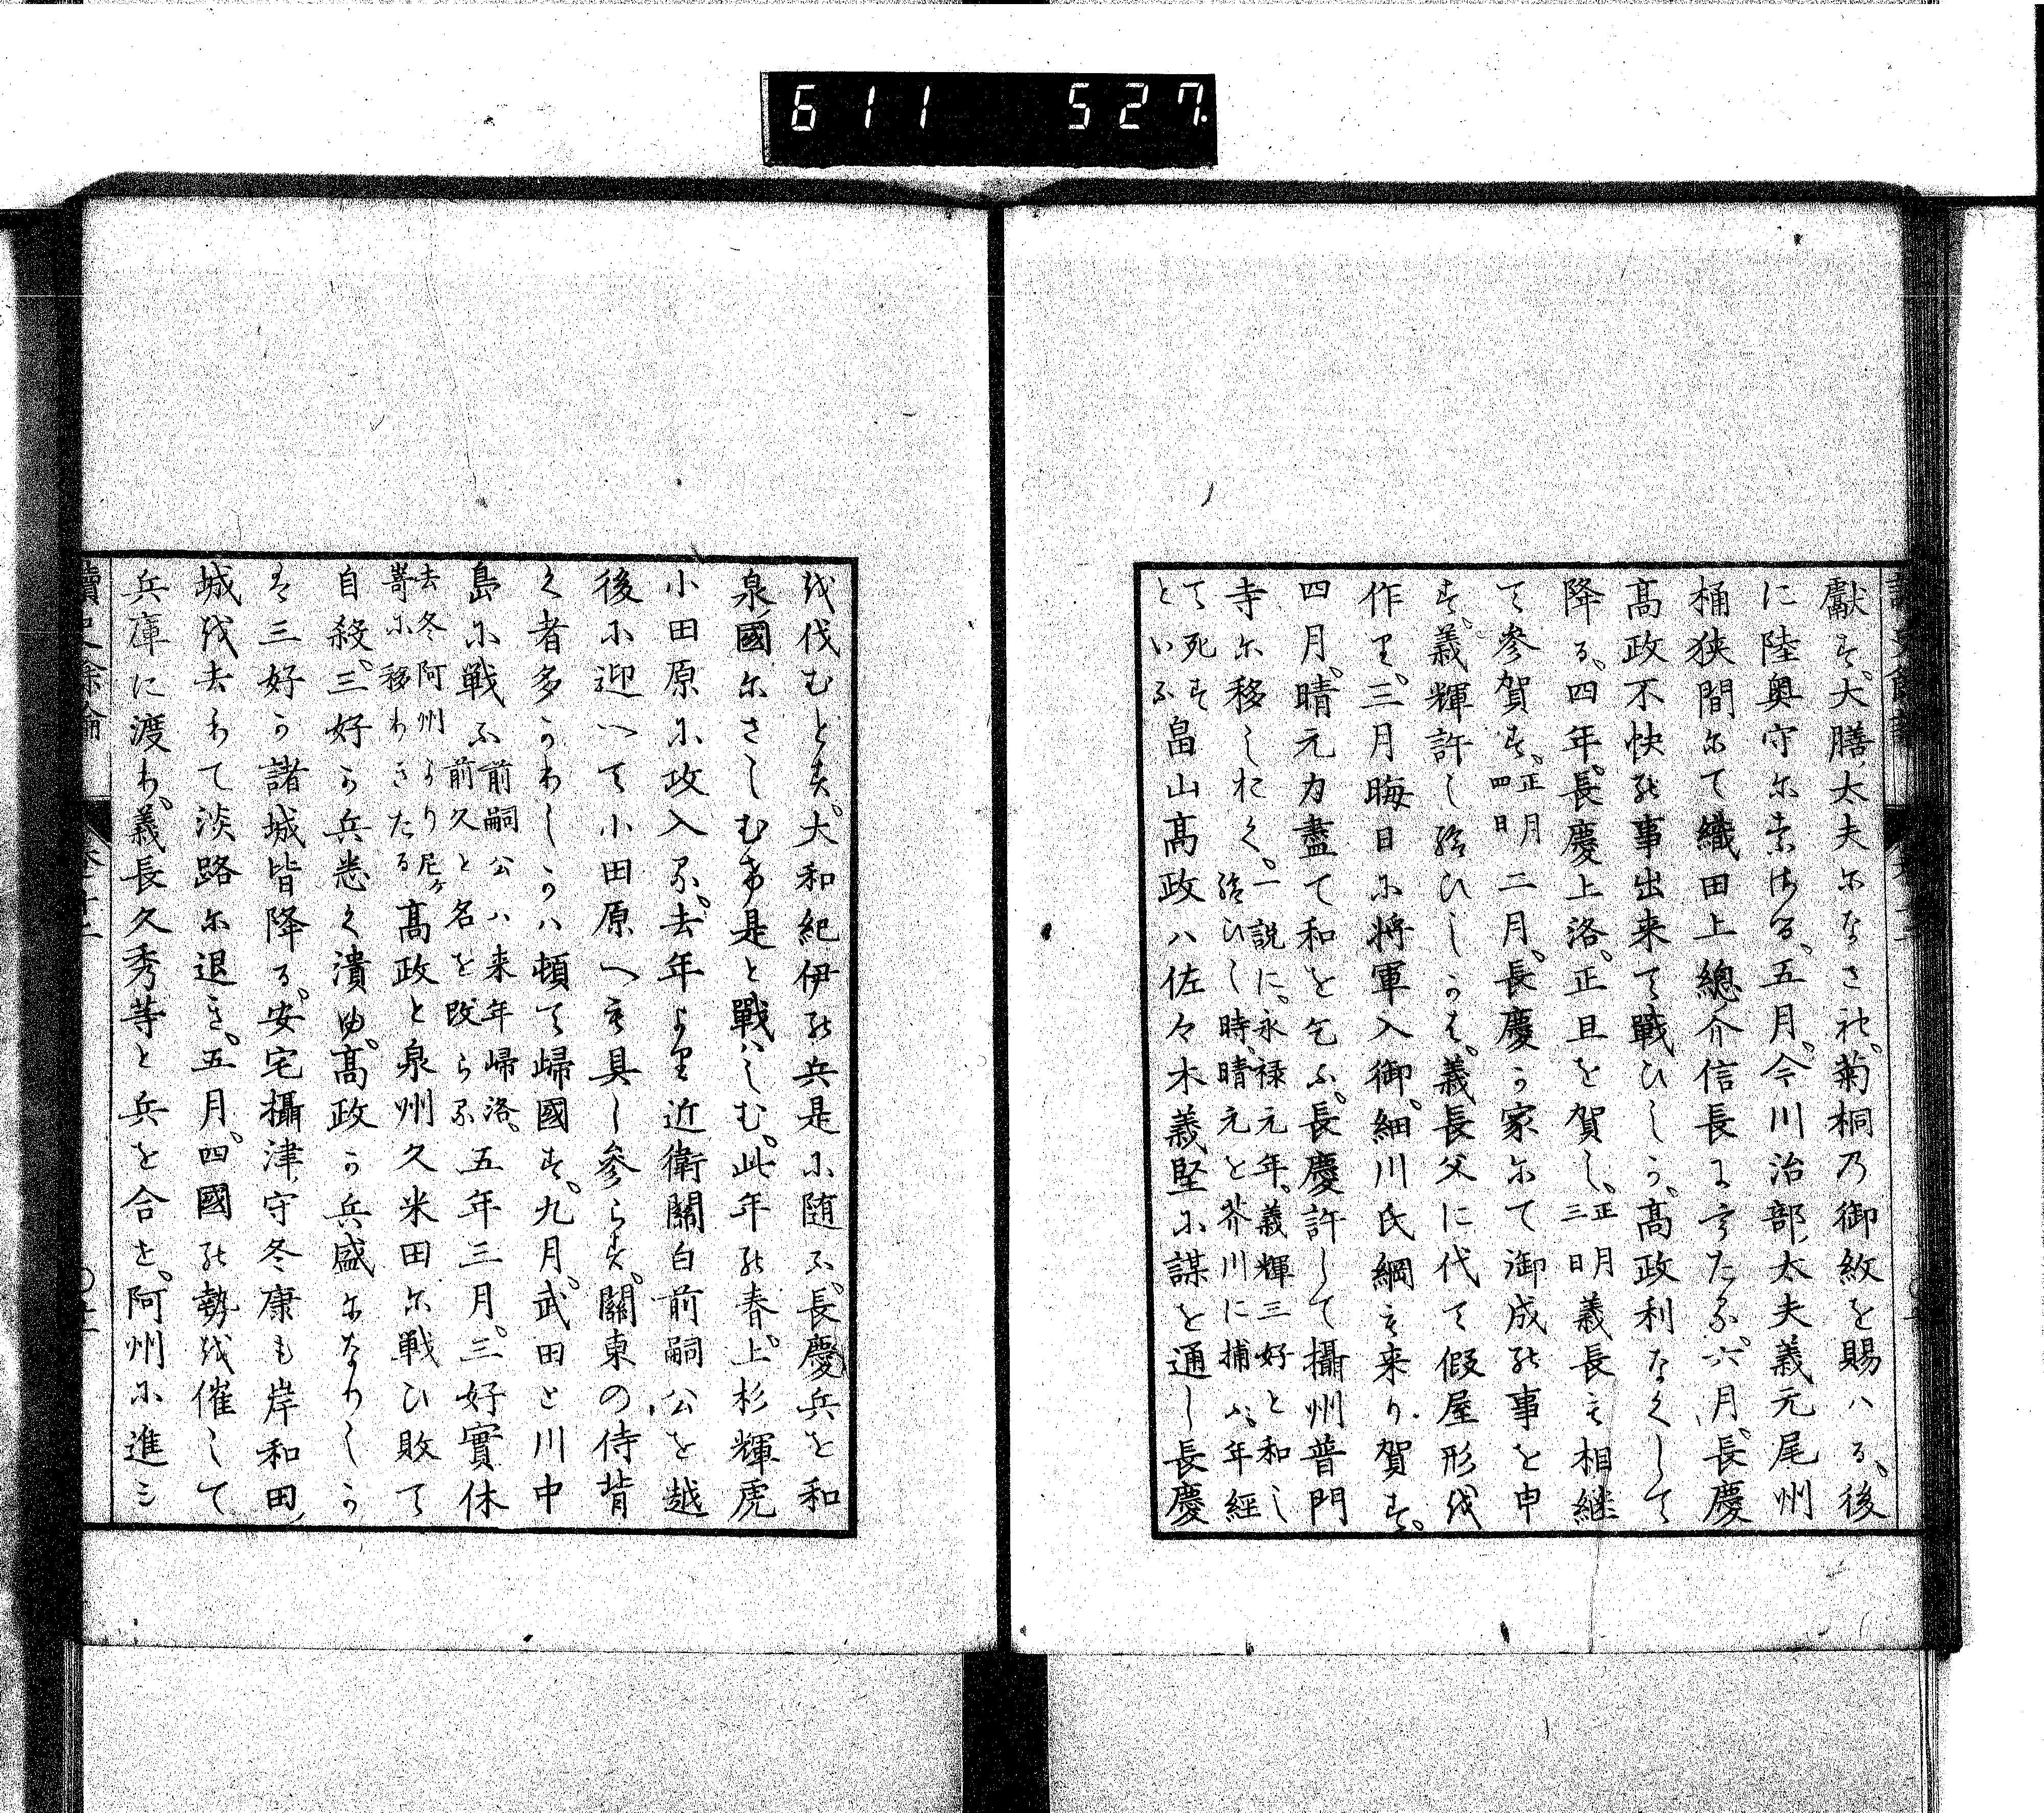 611 527
獻す。大膳太夫になさる。菊桐乃御紋を賜ハる。後
に陸奥守に常ぜる。五月。今川治部太夫義元尾州
桶狭間にて織田上總介信長にうたる。六月。長慶
髙政不快の事出来て戰ひしか。髙政利なくして
降る。四年。長慶上洛。正旦を賀し。正月三日義長も相継
て參賀す。正月四日二月。長慶か家にて御成の事を申
す。義輝許し給ひしかは。義長父に代て假屋形を
作り。三月晦日に將軍入御。細川氏綱も来り賀す。
四月。晴元力盡て和を乞ふ。長慶許して攝州普門
寺に移しおく。一説に。永禄元年。義輝三好と和し給ひし時。晴元を芥川に捕ふ。年經
て死すといふ畠山髙政ハ佐々木義堅に謀を通し長慶
を伐むとす。大和紀伊の兵是に随ふ。長慶兵を和
泉國にさしむけ是と戰ハしむ。此年の春。上杉輝虎
小田原に攻入る。去年より近衛關白前嗣公を越
後に迎へて小田原へも具し參らす。關東の侍背
く者多かりしかハ頓て歸國す。九月。武田と川中
島に戦ふ前嗣公ハ来年歸洛。前久と名を改らる五年三月。三好實休
去冬阿州より尼ヶ嵜に移りきたる髙政と泉州久米田に戦ひ敗て
自殺。三好か兵悉く潰ゆ。髙政か兵盛になりしか
は三好か諸城皆降る。安宅攝津守冬康も岸和田
城を去りて淡路に退き。五月。四國の勢を催して
兵庫に渡り。義長久秀等と兵を合せ。阿州に進ミ
讀史餘論